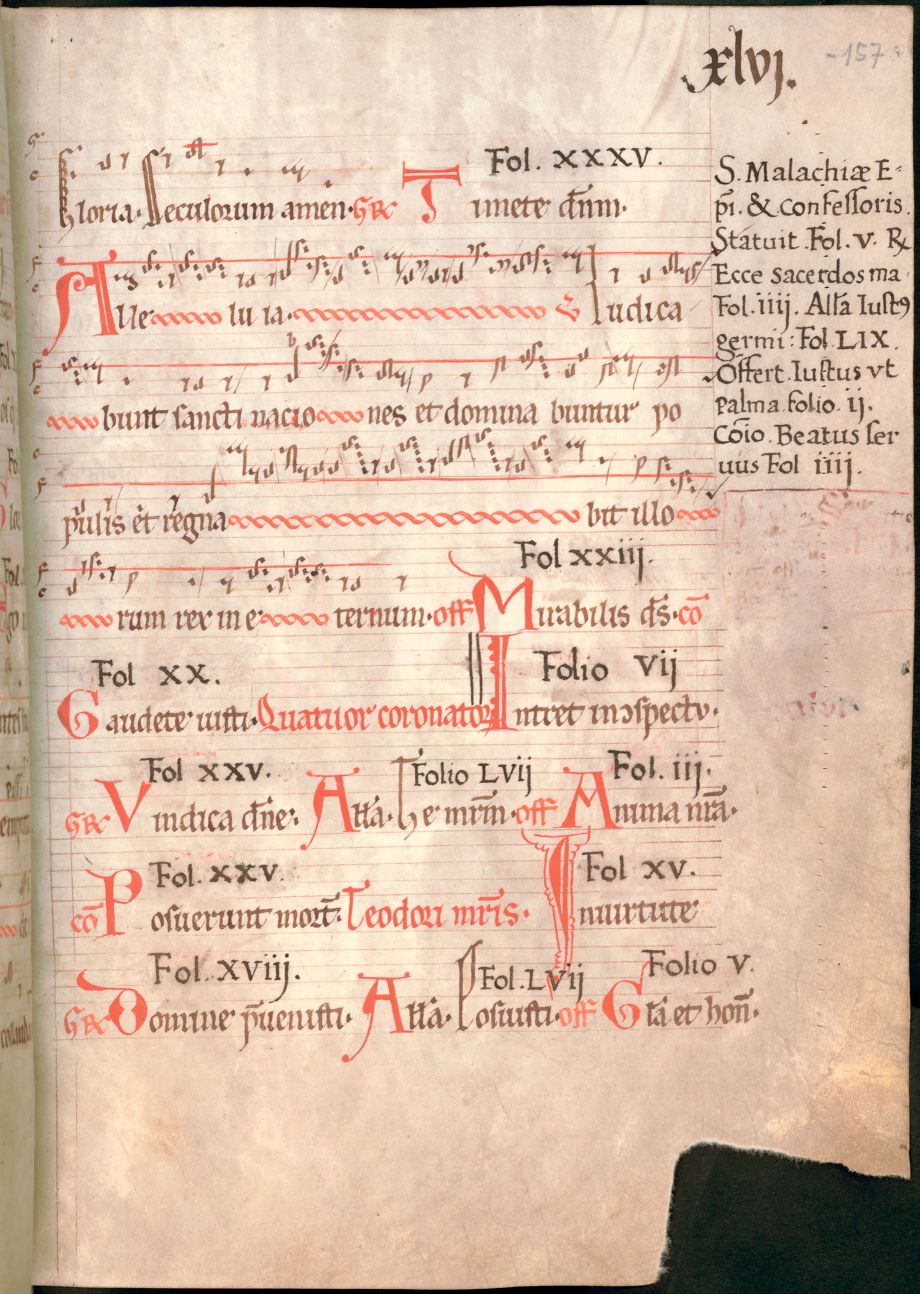 xlvj.
-157
Fol. XXXV.
Gloria. Seculorum amen. Gr Timete dn̄m.
Alle lu ia. Iudica
bunt sancti nacio nes et domina buntur po
pulis et regna bit illo
rum rex in e ternum. off Mirabilis ds̄. cō
Fol xxiij.
Gaudete iusti. Quatuor coronator Intret in ɔspectu.
Fol XX.
Folio VIj
Gr Vindica dn̄e. All̄a. he mr̄m. off Anima nr̄a.
Fol XXV.
Folio LVij
Fol. iij.
cō Posuerunt mort̄. Teodori mr̄is. Inuirtute
Fol. XXV.
Fol XV.
Gr Domine p̄uenisti. All̄a. Posuisti. off Gl̄a et hon̄.
Fol. XVIIj.
Fol. LVij
Folio V.
S. Malachiæ E-
pī. & confessoris.
Statuit Fol. V. R
Ecce sacerdos ma.
Fol. iiij. All̄a Iustꝯ
germi: Fol LIX.
Offert. Iustus vt
Palma folio ij.
Cōio. Beatus ser
uus Fol iiij.